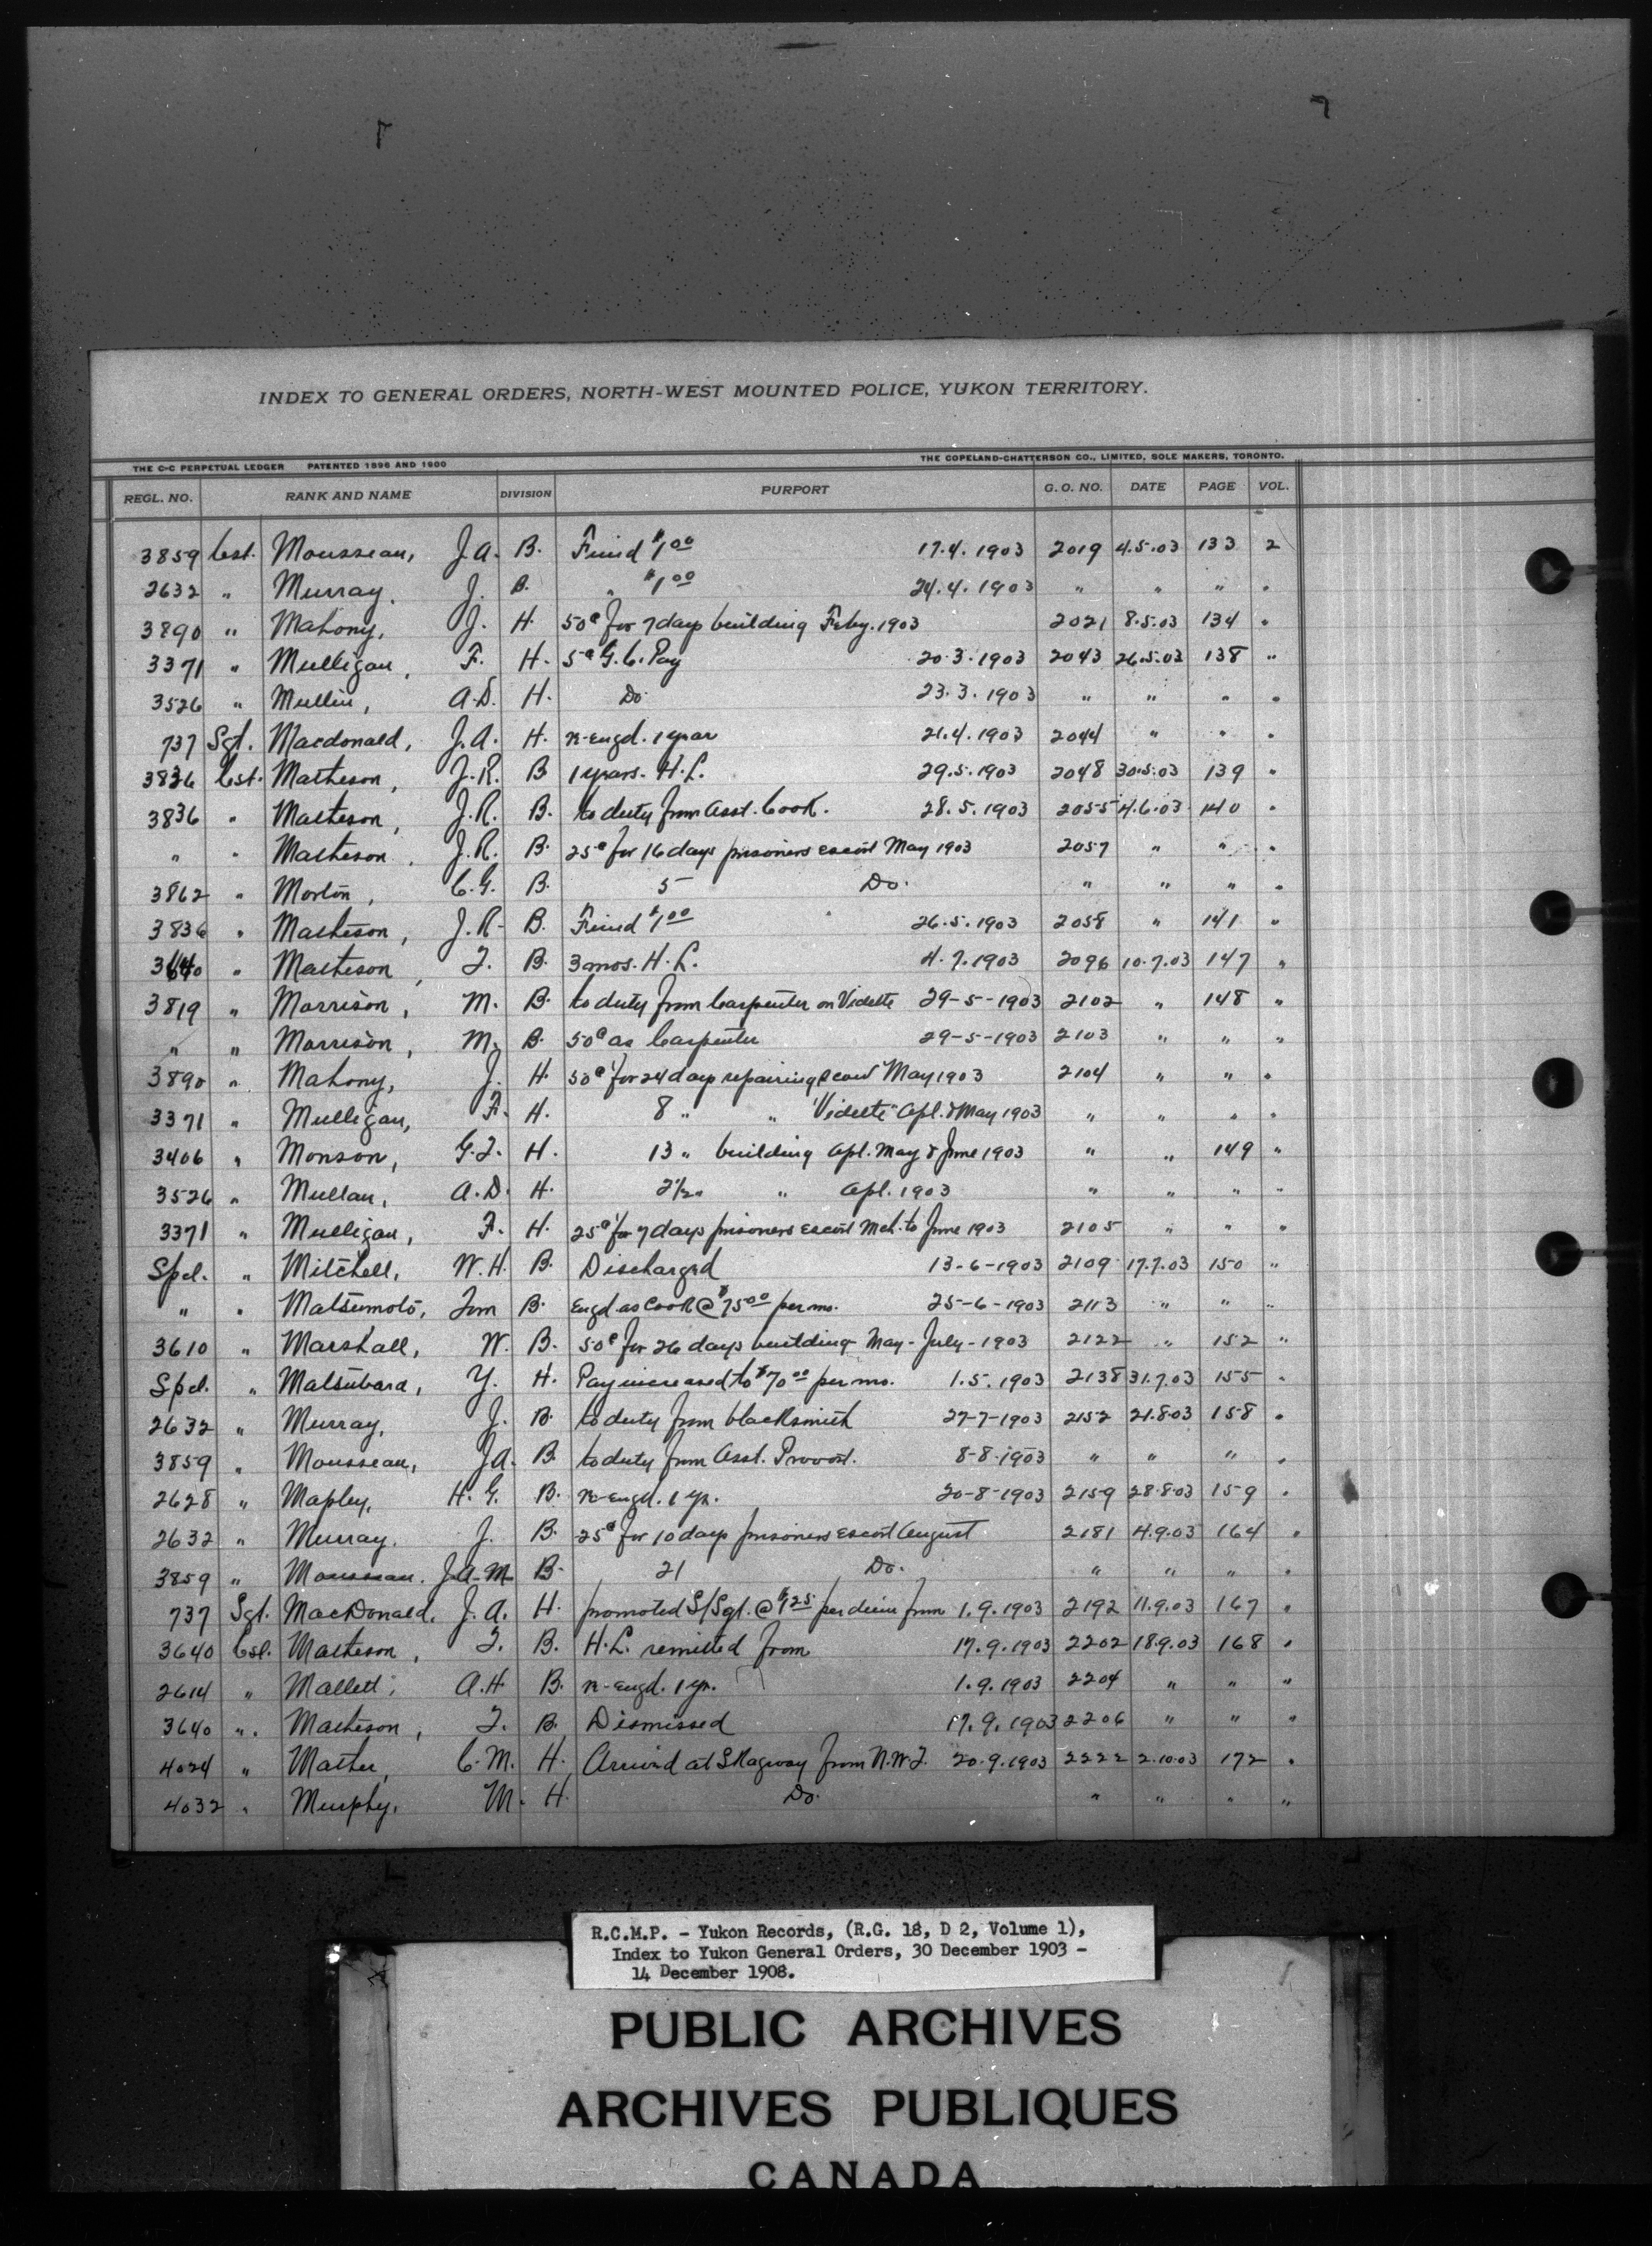 INDEX TO GENERAL ORDERS, NORTH-WEST MOUNTED POLICE, YUKON TERRITORY.
THE C-C PERPETUAL LEDGER PATENTED 1896 AND 1900 THE COPELAND-CHATTERSON CO., LIMITED, SOLE MAKERS, TORONTO.
REGL. NO. RANK AND NAME DIVISION PURPORT G.O. NO. DATE PAGE VOL.
3859 Cst. Mousseau, J.A. B. Fined $1.00 17.4.1903 2019 4.5.03 133 2
2632 " Murray, J. B. " $1.00 24.4.1903 " " " "
3890 " Mahony, J. H. 50¢ for 7 days building Feby. 1903 2021 8.5.03 134 "
3371 " Mulligan, F. H. 5¢ G.C. Pay 20.3.1903 2043 26.5.03 138 "
3526 " Mullin, A.D. H. Do. 23.3.1903 " " " "
737 Sgt. Macdonald, J.A. H. re-engd. 1 year 21.4.1903 2044 " " "
3836 Cst. Matheson, J.R. B 1 years. H.L. 29.5.1903 2048 30.5.03 139 "
3836 " Matheson, J.R. B. to duty from Asst. Cook. 28.5.1903 2055 4.6.03 140 "
" " Matheson, J.R. B. 25¢ for 16 days prisoners escort May 1903 2057 " " "
3862 " Morton, C.G. B. 5 Do. " " " "
3836 " Matheson, J.R. B. Fined $1.00 26.5.1903 2058 " 141 "
3640 " Matheson, T. B. 3 mos. H.L. 4.7.1903 2096 10.7.03 147 "
3819 " Morrison, M. B. to duty from Carpenter on Vidette 29-5-1903 2102 " 148 "
" " Morrison, M. B. 50¢ as Carpenter 29-5-1903 2103 " " "
3890 " Mahony, J. H. 50¢ for 24 days repairing scow May 1903 2104 " " "
3371 " Mulligan, F. H. 8 " " "Vidette" Apl. & May 1903 " " " "
3406 " Monson, G.T. H. 13 " building Apl. May & June 1903 " " 149 "
3526 " Mullan, A.D. H. 2½ " " Apl. 1903 " " " "
3371 " Mulligan, F. H. 25¢ for 7 days prisoners escort Mch. to June 1903 2105 " " "
Spcl. " Mitchell, W.H. B. Discharged 13-6-1903 2109 17.7.03 150 "
" " Matsumoto, Tom B. Engd. as Cook @ $75.00 per mo. 25-6-1903 2113 " " "
3610 " Marshall, W. B. 50¢ for 26 days building May-July-1903 2122 " 152 "
Spcl. " Matsubara, Y. H. Pay increased to $70.00 per mo. 1.5.1903 2138 31.7.03 155 "
2632 " Murray, J. B. to duty from blacksmith 27-7-1903 2152 21.8.03 158 "
3859 " Mousseau, J.A. B. to duty from Asst. Provost. 8-8-1903 " " " "
2628 " Mapley, H.G. B. re-engd. 1 yr. 20-8-1903 2159 28.8.03 159 "
2632 " Murray, J. B. 25¢ for 10 days prisoners escort August 2181 4.9.03 164 "
3859 " Mousseau, J.A.M. B. 21 Do. " " " "
737 Sgt. MacDonald, J.A. H. promoted S/Sgt. @ $1.25 per diem from 1.9.1903 2192 11.9.03 167 "
3640 Cst. Matheson, T. B. H.L. remitted from 17.9.1903 2202 18.9.03 168 "
2614 " Mallett, A.H. B. re-engd. 1 yr. 1.9.1903 2204 " " "
3640 " Matheson, T. B. Dismissed 17.9.1903 2206 " " "
4024 " Mather, C.M. H. Arrived at Skagway from N.W.T. 20.9.1903 2222 2.10.03 172 "
4032 " Murphy, M. H. Do. " " " "
R.C.M.P. - Yukon Records, (R.G. 18, D 2, Volume 1),
Index to Yukon General Orders, 30 December 1903 -
14 December 1908.
PUBLIC ARCHIVES
ARCHIVES PUBLIQUES
CANADA